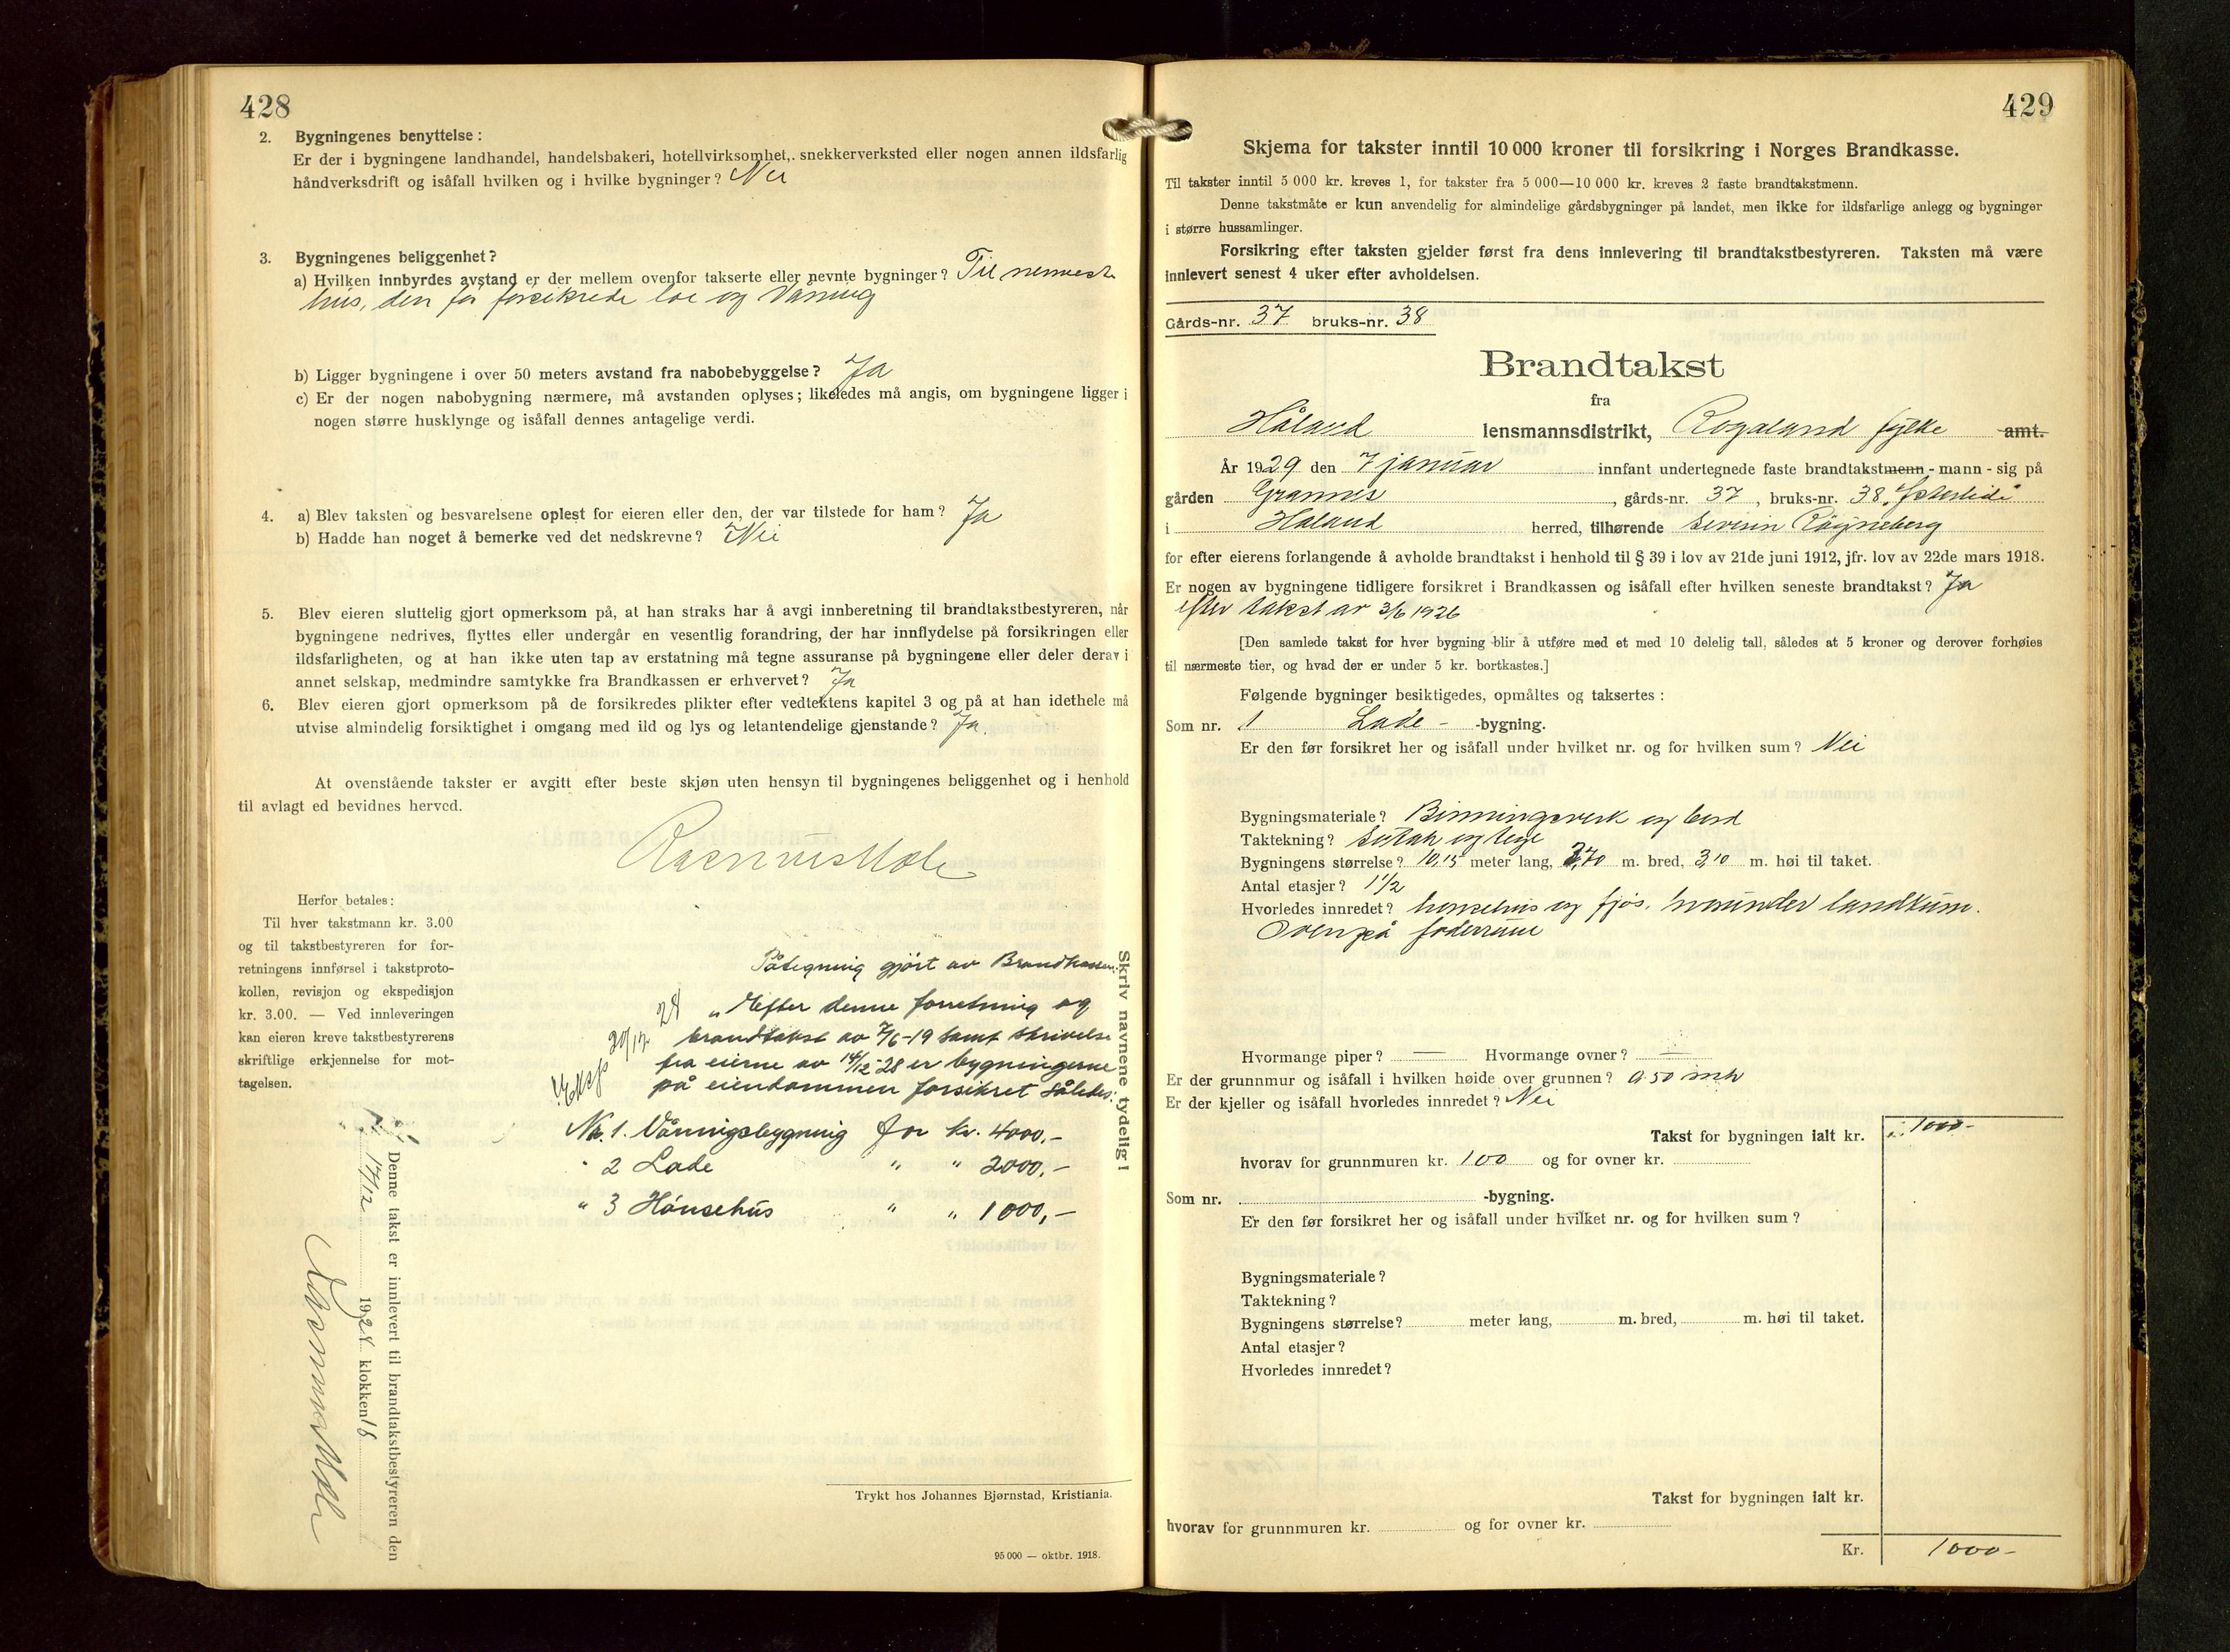 428
2. Bygningenes benyttelse:
Er der i bygningene landhandel, handelsbakeri, hotellvirksomhet, snekkerverksted eller nogen annen ildsfarlig
håndverksdrift og isåfall hvilken og i hvilke bygninger? Nei
3. Bygningenes beliggenhet?
a) Hvilken innbyrdes avstand er der mellem ovenfor takserte eller nevnte bygninger? Til nermeste
hus, den før forsikrede loe og Våning
b) Ligger bygningene i over 50 meters avstand fra nabobebyggelse? Ja
c) Er der nogen nabobygning nærmere, må avstanden oplyses; likeledes må angis, om bygningene ligger i
nogen større husklynge og isåfall dennes antagelige verdi.
4. a) Blev taksten og besvarelsene oplest for eieren eller den, der var tilstede for ham? Ja
b) Hadde han noget å bemerke ved det nedskrevne? Nei
5. Blev eieren sluttelig gjort opmerksom på, at han straks har å avgi innberetning til brandtakstbestyreren, når
bygningene nedrives, flyttes eller undergår en vesentlig forandring, der har innflydelse på forsikringen eller
ildsfarligheten, og at han ikke uten tap av erstatning må tegne assuranse på bygningene eller deler derav i
annet selskap, medmindre samtykke fra Brandkassen er erhvervet? Ja
6. Blev eieren gjort opmerksom på de forsikredes plikter efter vedtektens kapitel 3 og på at han idethele må
utvise almindelig forsiktighet i omgang med ild og lys og letantendelige gjenstande? Ja.
At ovenstående takster er avgitt efter beste skjøn uten hensyn til bygningenes beliggenhet og i henhold
til avlagt ed bevidnes herved.
Rasmus Mæle
Herfor betales:
Til hver takstmann kr. 3.00
og til takstbestyreren for for-
retningens innførsel i takstproto-
kollen, revisjon og ekspedisjon
kr. 3.00. — Ved innleveringen
kan eieren kreve takstbestyrerens
skriftlige erkjennelse for mot-
tagelsen.
Påtegning gjørt av Brandkassen:
„Efter denne forretning og
brandtakst av 7/6-19 samt skrivelse
fra eierne av 14/12-28 er bygningerne
på eiendommen forsikret således:
Eksp 20/12 28
No. 1. Våningsbygning for kr. 4000,-
" 2 Lade " " 2000,-
" 3 Hönsehus " " 1000,-
Skriv navnene tydelig!
Denne takst er innlevert til brandtakstbestyreren den
14/12 1928 klokken 16
Rasmus Mæle
Trykt hos Johannes Bjørnstad, Kristiania.
95 000 — oktbr. 1918.
429
Skjema for takster inntil 10 000 kroner til forsikring i Norges Brandkasse.
Til takster inntil 5 000 kr. kreves 1, for takster fra 5 000—10 000 kr. kreves 2 faste brandtakstmenn.
Denne takstmåte er kun anvendelig for almindelige gårdsbygninger på landet, men ikke for ildsfarlige anlegg og bygninger
i større hussamlinger.
Forsikring efter taksten gjelder først fra dens innlevering til brandtakstbestyreren. Taksten må være
innlevert senest 4 uker efter avholdelsen.
Gårds-nr. 37 bruks-nr. 38
Brandtakst
fra
Håland lensmannsdistrikt, Rogaland fylke amt.
År 1929 den 7 januar innfant undertegnede faste brandtakstmenn - mann - sig på
gården Grannes, gårds-nr. 37, bruks-nr. 38
i Håland herred, tilhørende Severin Røgneberg
for efter eierens forlangende å avholde brandtakst i henhold til § 39 i lov av 21de juni 1912, jfr. lov av 22de mars 1918.
Er nogen av bygningene tidligere forsikret i Brandkassen og isåfall efter hvilken seneste brandtakst? Ja
efter takst av 3/6 1926
[Den samlede takst for hver bygning blir å utføre med et med 10 delelig tall, således at 5 kroner og derover forhøies
til nærmeste tier, og hvad der er under 5 kr. bortkastes.]
Følgende bygninger besiktigedes, opmåltes og taksertes:
Som nr. 1 Lade- -bygning.
Er den før forsikret her og isåfall under hvilket nr. og for hvilken sum? Nei
Bygningsmateriale? Binningsverk og bord
Taktekning? Sutak og tegl
Bygningens størrelse? 10,15 meter lang, 3,70 m. bred, 3,10 m. høi til taket.
Antal etasjer? 1 1/2
Hvorledes innredet? hønsehus og fjøs, hvorunder landkum.
Ovenpå foderrum
Hvormange piper? — Hvormange ovner? —
Er der grunnmur og isåfall i hvilken høide over grunnen? 0.50 mtr
Er der kjeller og isåfall hvorledes innredet? Nei
Takst for bygningen ialt kr. 1000-
hvorav for grunnmuren kr. 100 og for ovner kr.
Som nr. -bygning.
Er den før forsikret her og isåfall under hvilket nr. og for hvilken sum?
Bygningsmateriale?
Taktekning?
Bygningens størrelse? meter lang, m. bred, m. høi til taket.
Antal etasjer?
Hvorledes innredet?
Takst for bygningen ialt kr.
hvorav for grunnmuren kr. og for ovner kr.
Kr. 1000-